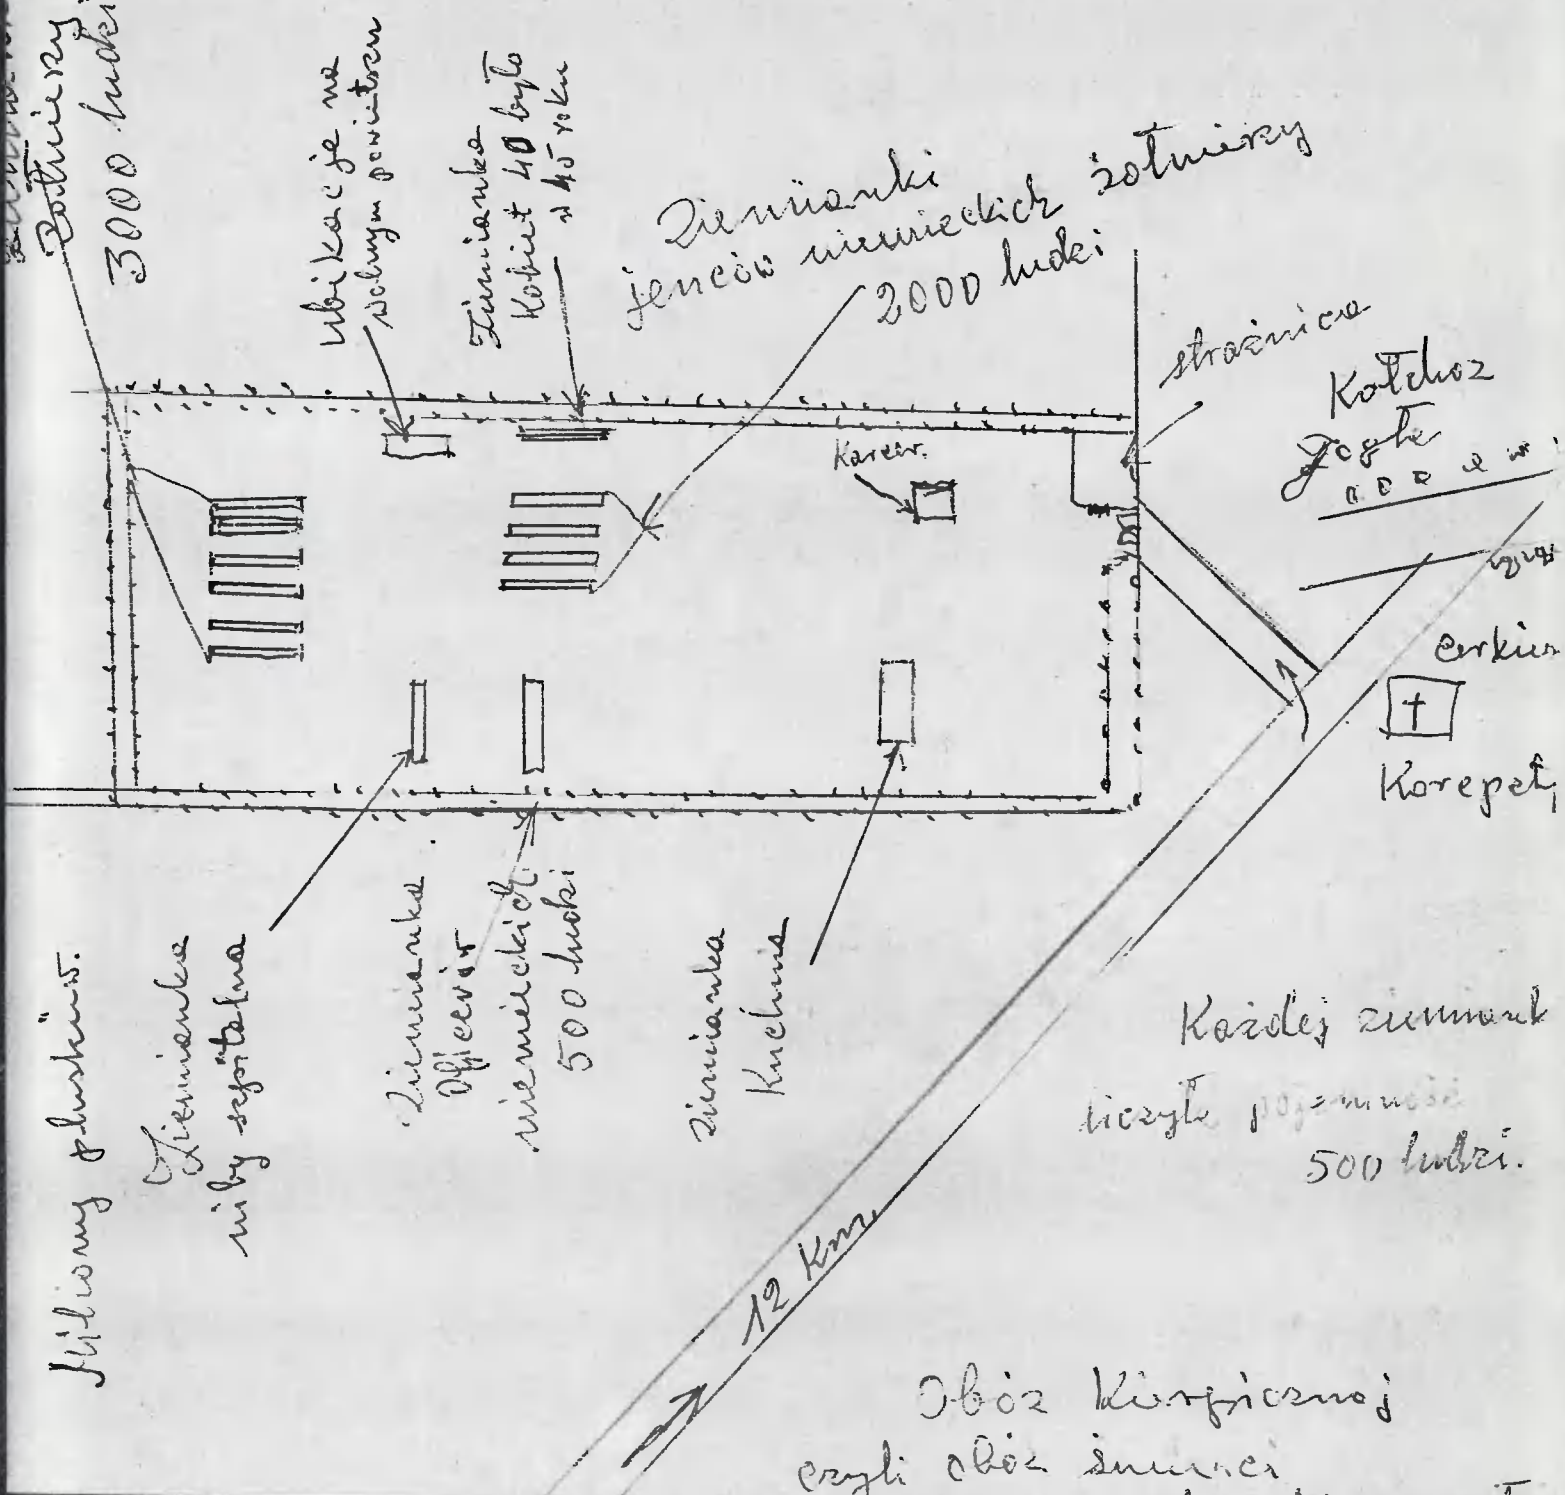 Żołnierzy
3000 ludzi
Ubikacje na
wolnym powietrzu
Ziemianka
Kobiet 40 było
w 45 roku
Ziemianki
jenców niemieckich żołnierzy
2000 ludzi
strażnica
Kołchoz
Jogła
Karcer.
cerkiew
Korepety
Miliony pluskiew.
Ziemianka
niby szpitalna
Ziemianka
Oficerów
niemieckich
500 ludzi
ziemianka
Kuchnia
Każdej ziemiank
liczyła pojemność
500 ludzi.
12 Km.
Obóz Kirpicznoj
czyli obóz śmierci